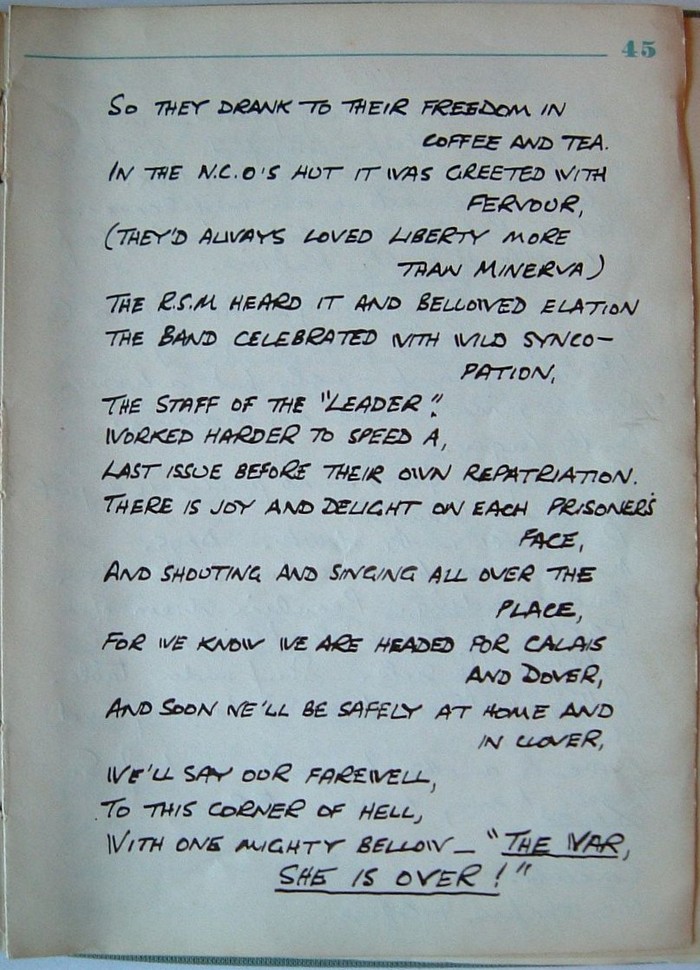 45
SO THEY DRANK TO THEIR FREEDOM IN
COFFEE AND TEA.
IN THE N.C.O'S HUT IT WAS GREETED WITH
FERVOUR,
(THEY'D ALWAYS LOVED LIBERTY MORE
THAN MINERVA)
THE R.S.M HEARD IT AND BELLOWED ELATION
THE BAND CELEBRATED WITH WILD SYNCO-
PATION,
THE STAFF OF THE "LEADER".
WORKED HARDER TO SPEED A,
LAST ISSUE BEFORE THEIR OWN REPATRIATION.
THERE IS JOY AND DELIGHT ON EACH PRISONER'S
FACE,
AND SHOUTING AND SINGING ALL OVER THE
PLACE,
FOR WE KNOW WE ARE HEADED FOR CALAIS
AND DOVER,
AND SOON WE'LL BE SAFELY AT HOME AND
IN CLOVER,
WE'LL SAY OUR FAREWELL,
TO THIS CORNER OF HELL,
WITH ONE MIGHTY BELLOW_ "THE WAR,
SHE IS OVER!"